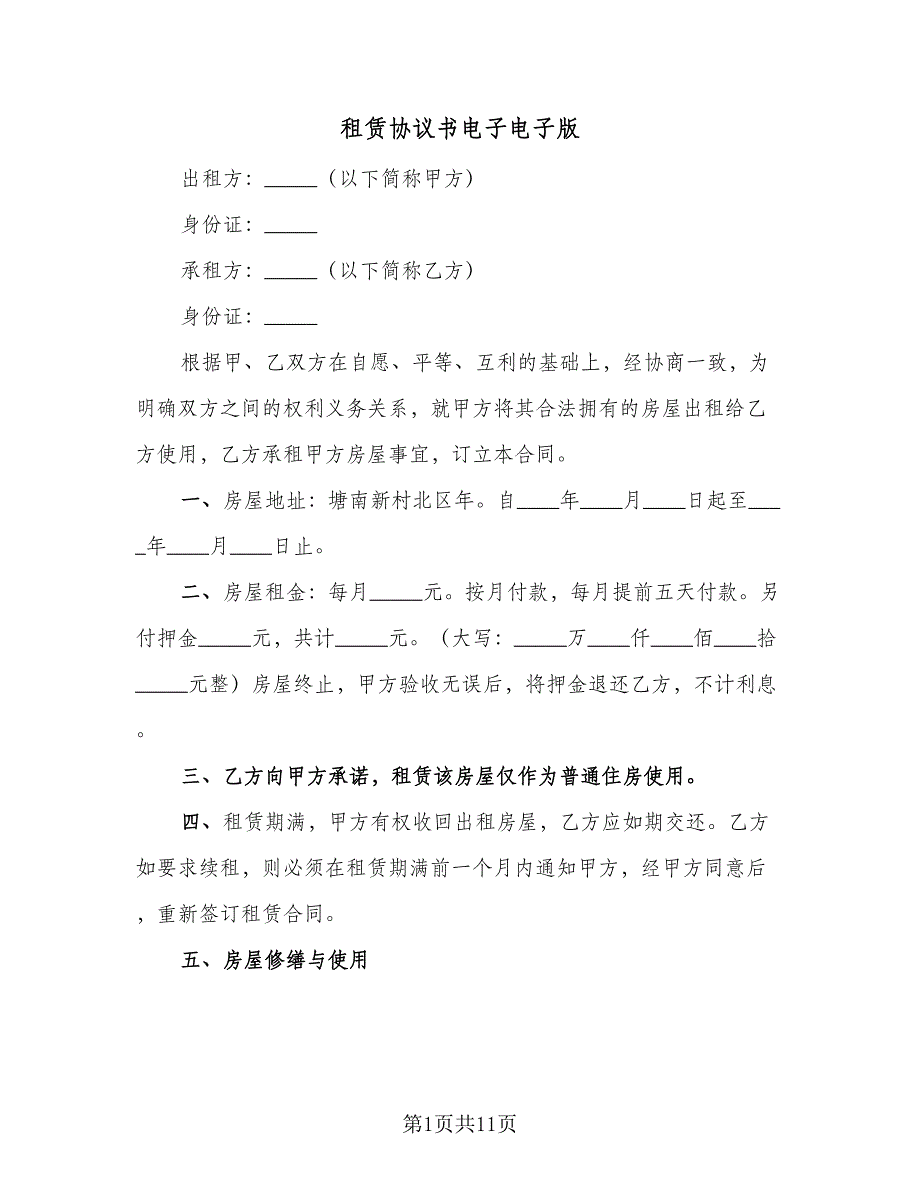 租赁协议书电子电子版
出租方：_____（以下简称甲方）
身份证：_____
承租方：_____（以下简称乙方）
身份证：_____
根据甲、乙双方在自愿、平等、互利的基础上，经协商一致，为
明确双方之间的权利义务关系，就甲方将其合法拥有的房屋出租给乙
方使用，乙方承租甲方房屋事宜，订立本合同。
一、房屋地址：塘南新村北区年。自____年____月____日起至___
_年____月____日止。
二、房屋租金：每月_____元。按月付款，每月提前五天付款。另
付押金_____元，共计_____元。（大写：_____万____仟____佰____拾
_____元整）房屋终止，甲方验收无误后，将押金退还乙方，不计利息
。
三、乙方向甲方承诺，租赁该房屋仅作为普通住房使用。
四、租赁期满，甲方有权收回出租房屋，乙方应如期交还。乙方
如要求续租，则必须在租赁期满前一个月内通知甲方，经甲方同意后
，重新签订租赁合同。
五、房屋修缮与使用
第1页共11页